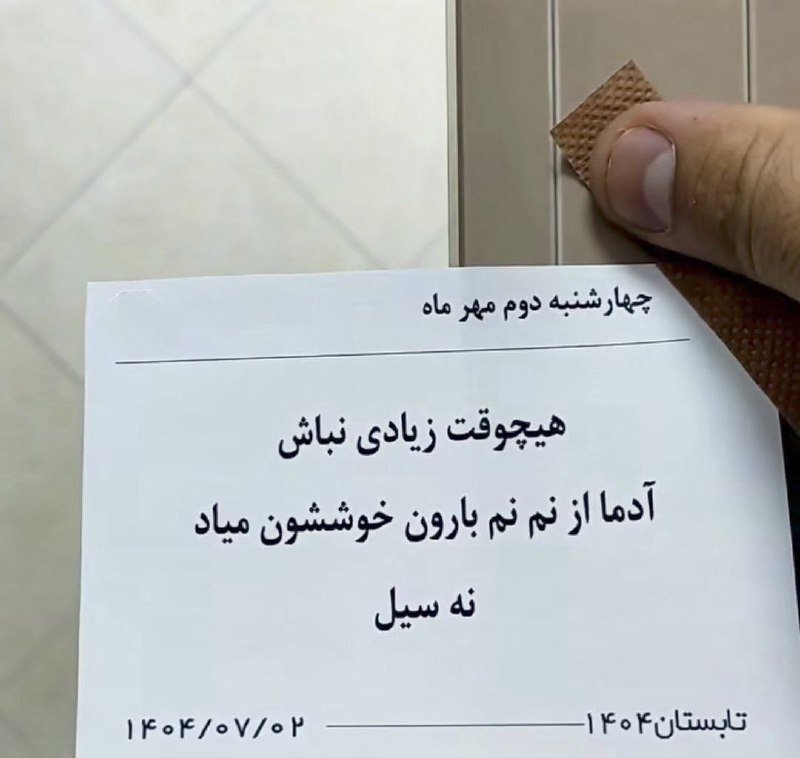 چهارشنبه دوم مهر ماه
هیچوقت زیادی نباش
آدما از نم نم بارون خوششون میاد
نه سیل
تابستان۱۴۰۴ ۱۴۰۴/۰۷/۰۲